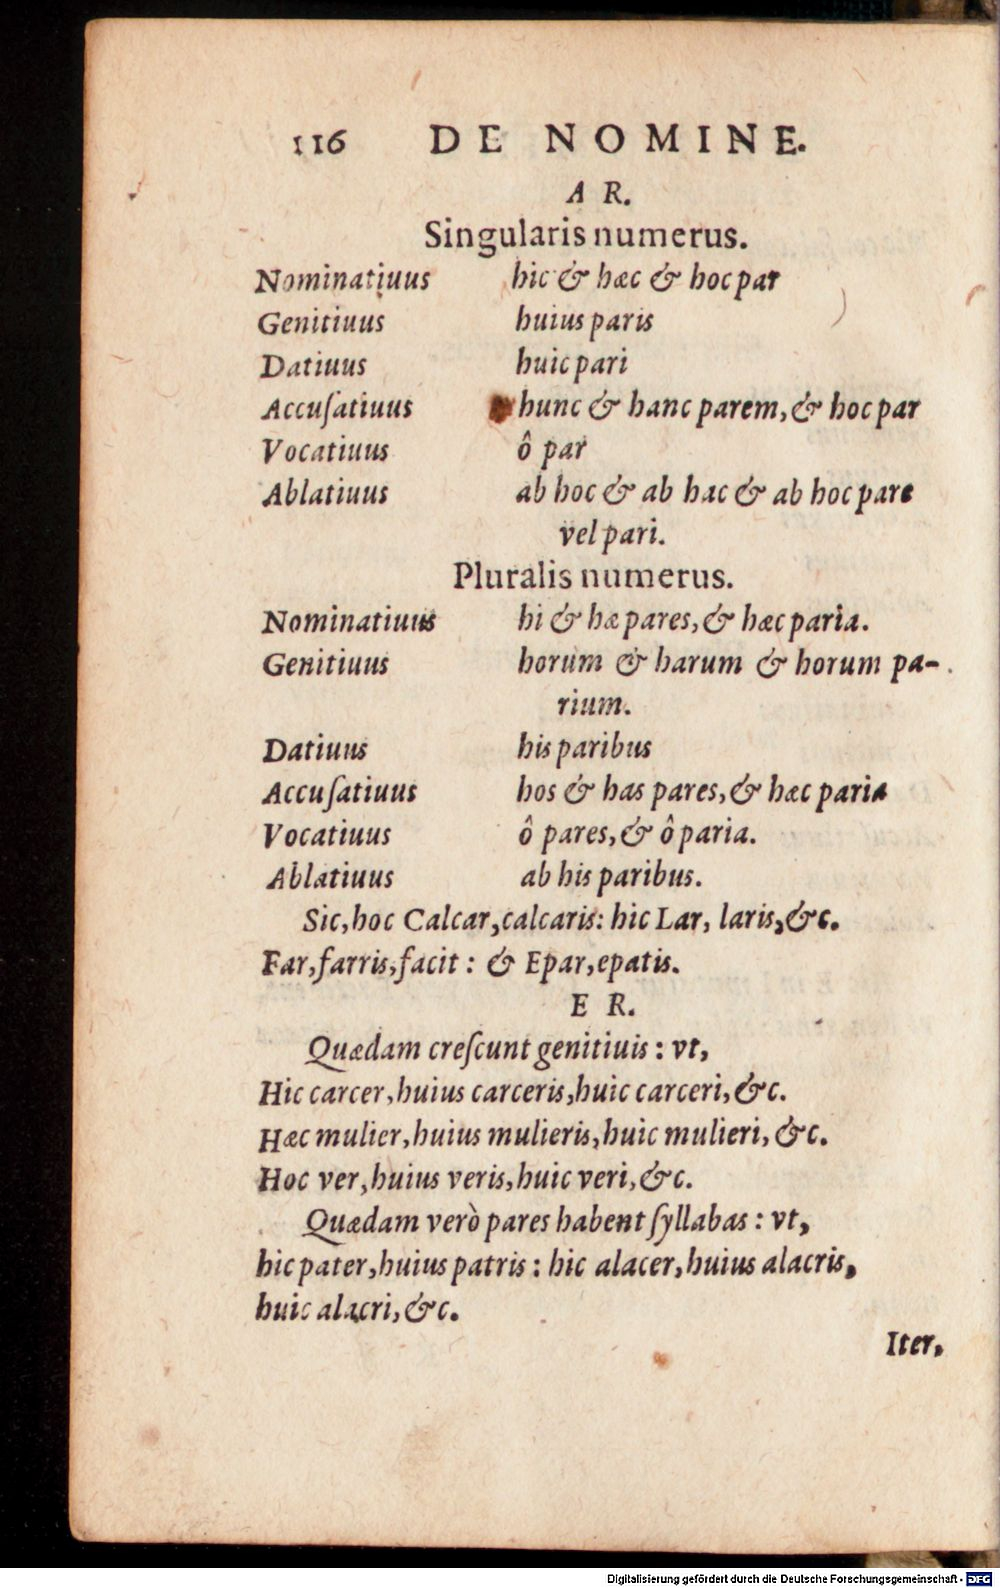 116 DE NOMINE.
A R.
Singularis numerus.
Nominatiuus hic & hæc & hoc par
Genitiuus huius paris
Datiuus huic pari
Accuſatiuus hunc & hanc parem, & hoc par
Vocatiuus ô par
Ablatiuus ab hoc & ab hac & ab hoc pare
vel pari.
Pluralis numerus.
Nominatiuus hi & hæ pares, & hæc paria.
Genitiuus horum & harum & horum pa-
rium.
Datiuus his paribus
Accuſatiuus hos & has pares, & hæc paria
Vocatiuus ô pares, & ô paria.
Ablatiuus ab his paribus.
Sic, hoc Calcar, calcaris: hic Lar, laris, &c.
Far, farris, facit: & Epar, epatis.
E R.
Quædam creſcunt genitiuis: vt,
Hic carcer, huius carceris, huic carceri, &c.
Hæc mulier, huius mulieris, huic mulieri, &c.
Hoc ver, huius veris, huic veri, &c.
Quædam verò pares habent ſyllabas: vt,
hic pater, huius patris: hic alacer, huius alacris,
huic alacri, &c.
Iter,
Digitalisierung gefördert durch die Deutsche Forschungsgemeinschaft - DFG